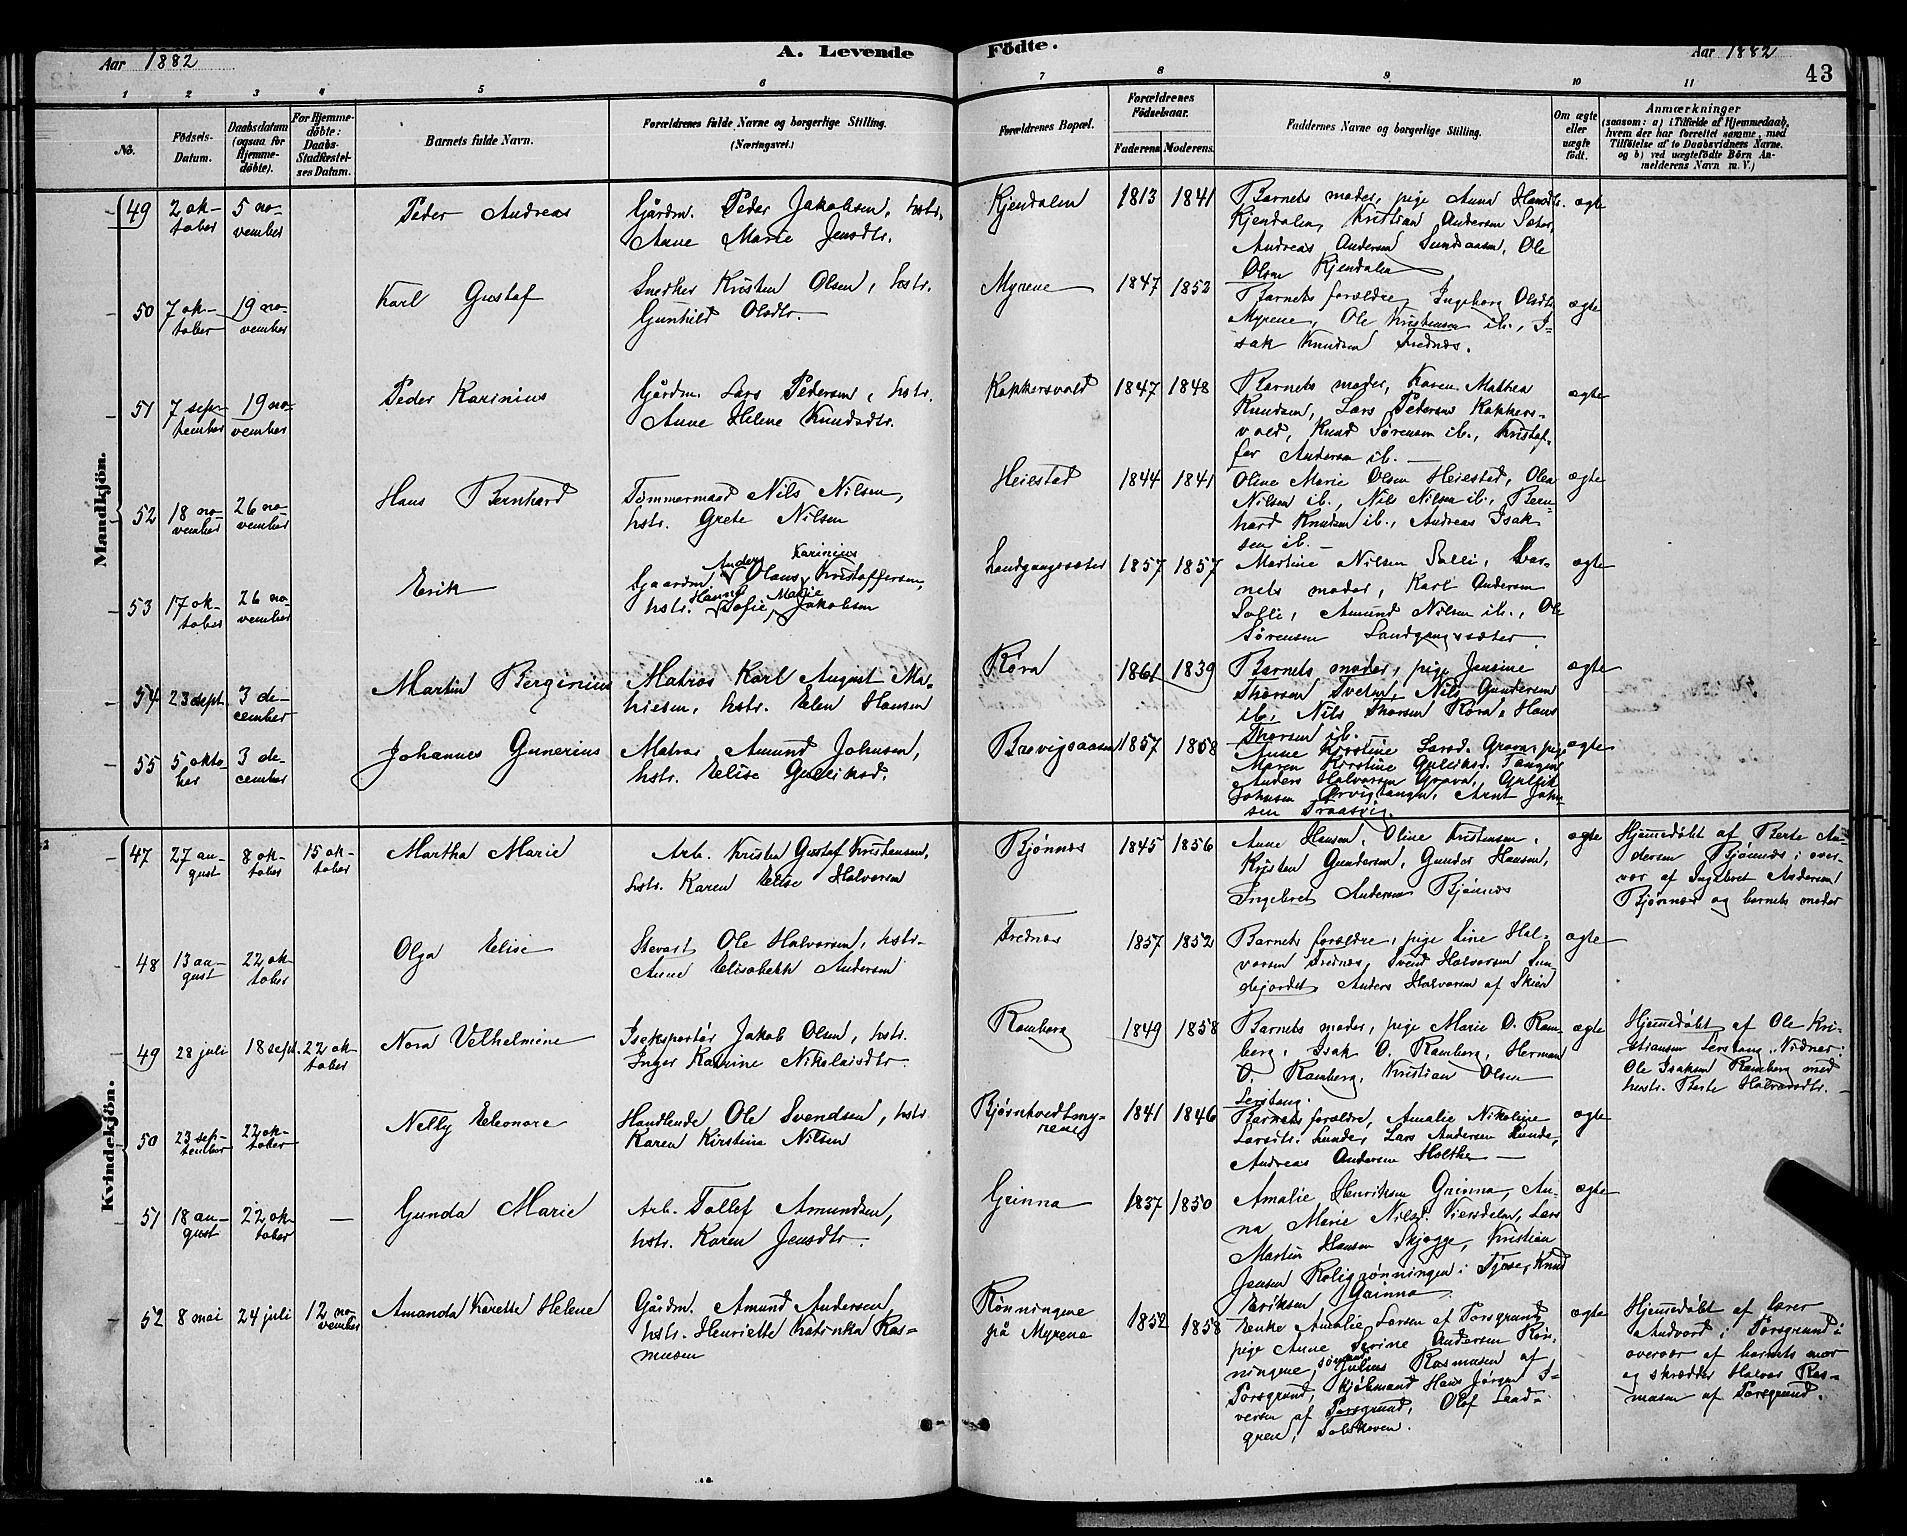 Aar 1882
A. Levende Födte.
Aar 1882
43
1 2 3 4 5 6 7 8 9 10 11
No.
Födsels-Datum.
Daabsdatum (ogsaa for Hjemme-döbte).
For Hjemme-döbte: Daabs-Stadfæstel-ses Datum.
Barnets fulde Navn.
Forældrenes fulde Navne og borgerlige Stilling.
(Næringsvei.)
Forældrenes Bopæl.
Forældrenes Födselsaar.
Faderens. Moderens.
Faddernes Navne og borgerlige Stilling.
Om ægte eller uægte födt.
Anmærkninger
(saasom: a) i Tilfælde af Hjemmedaab,
hvem der har forrettet samme, med
Tilföielse af to Daabsvidners Navne.
og b) ved uægtefödte Börn An-
melderens Navn m. V.)
Mandkjön.
49 2 ok-tober 5 no-vember Peder Andreas
Gårdm. Peder Jakobsen, hstr.
Anne Marie Jensdtr.
Kjendalen 1813 1841
Barnets moder, pige Anne Hansdtr.
Kjendalen, Kristian Andersen Sæter,
Andreas Andersen Sundsaasen, Ole
Olsen Kjendalen
ægte
50 7 ok-tober 19 no-vember Karl Gustaf
Snedker Kristen Olsen, hstr.
Gunhild Olsdtr.
Myrene 1847 1852
Barnets forældre, Ingeborg Olsdtr.
Myrene, Ole Kristensen ib., I-
sak Knudsen Frednes.
ægte
51 7 sep-tember 19 no-vember Peder Karinius
Gårdm. Lars Pedersen, hstr.
Anne Helene Knudsdtr.
Kokkersvold 1847 1848
Barnets moder, Karen Mathea
Knudsen, Lars Pedersen Kokkers-
vold, Knud Sørensen ib., Kristof-
fer Andersen ib.
ægte
52 18 no-vember 26 no-vember Hans Bernhard
Tømmermand Nils Nilsen,
hstr. Grete Nilsen
Heiestad 1844 1841
Oline Marie Olsen Heiestad, Olea
Nilsen ib., Nils Nilsen ib., Bern-
hard Knudsen ib., Andreas Isak-
sen ib.
ægte
53 17 ok-tober 26 no-vember Erik
Anders Karinius
Gaardm. Olaus Kristoffersen,
Hanna Marie
hstr. Sofie Jakobsen
Landgangssæter 1857 1857
Martine Nilsen Solli, bar-
nets moder, Karl Andersen
Solli, Amund Nilsen ib., Ole
Sørensen Landgangssæter
ægte
54 23 sept. 3 de-cember Martin Berginius
Matros Karl August Ma-
hiesen, hstr. Elen Hansen
Røra 1861 1839
Barnets moder, pige Jensine
Thorsen Tveten, Nils Gundersen
ib., Nils Thorsen Røra, Hans
Thorsen ib.
ægte
55 5 okto-ber 3 de-cember Johannes Gunerius
Matros Amund Johnsen,
hstr. Elise Gulliksd.
Brevigsaasen 1857 1858
Anne Kirstine Larsd. Grava, pige
Maren Kirstine Gulliksd. Tangen
Anders Halvorsen Grava, Gullik
Johnsen Ørvigtangen, Arnt John-
sen Traasvig.
ægte
Kvindekjön.
47 27 au-gust 8 ok-tober 15 ok-tober Martha Marie
Arb. Kristen Gustaf Kristensen,
hstr. Karen Elise Halvorsen
Bjønnes 1845 1856
Anne Hansen, Oline Kristensen,
Kristen Gundersen, Gunder Hansen,
Ingebret Andersen Bjønnes
ægte
Hjemedøbt af Berte An-
dersen Bjønnes i over-
vær af Ingebret Andersen
Bjønnes og barnets moder
48 13 au-gust 22 ok-tober Olga Elise
Stevart Ole Halvorsen, hstr.
Anne Elisabeth Andersen
Frednes 1857 1852
Barnets forældre, pige Line Hal-
vorsen Frednes, Svend Halvorsen Sun-
dejordet, Anders Halvorsen af Skien
ægte
49 28 juli 18 sept. 22 ok-tober Nora Velhelmine
Iseksportør Jakob Olsen, hstr.
Inger Katrine Nikolaisdtr.
Ramberg 1849 1858
Barnets moder, pige Marie O. Ram-
berg, Isak O. Ramberg, Herman
O. Ramberg, Kristian Olsen
Lerstang.
ægte
Hjemedøbt af Ole Kri-
stiansen Lerstang. Vidner:
Ole Isaksen Ramberg med
hustr. Berte Halvorsdtr.
50 23 sep-tember 22 ok-tober Nelly Eleonore
Handlende Ole Svendsen, hstr.
Karen Kirstine Nilsen
Bjørntvedtmy-rene 1841 1846
Barnets forældre, Amalie Nikoline
Larsdtr. Lunde, Lars Andersen Lunde,
Andreas Andersen Holtke
ægte
51 18 au-gust 22 ok-tober — Gunda Marie
Arb. Tollef Amundsen,
hstr. Karen Jensdtr.
Grinna 1837 1850
Amalie Henriksen Grinna, An-
na Marie Nilsd. Viersdalen, Lars
Martin Hansen Skjogge, Kristian
Jensen Roligrønningen i Tjose, Knud
Eriksen Grinna.
ægte
52 8 mai 24 juli 12 no-vember Amanda Karette Helene
Gårdm. Amund Andersen,
hstr. Henriette Katrinka Ras-
musen
Rønningene
på Myrene 1852 1858
Enke Amalie Larsen af Porsgrund
pige Anne Serine Andersen Røn-
ningene, sømand Julius Rasmusen af
Porsgrund, kjøbmand Hans Jørgen I-
versen af Porsgrund, Olof Lind-
gren,
ægte
Hjemedøbt af lærer
Andvord i Porsgrund i
overvær af barnets mor
og skrædder Halvor Ras-
musen af Porsgrund.